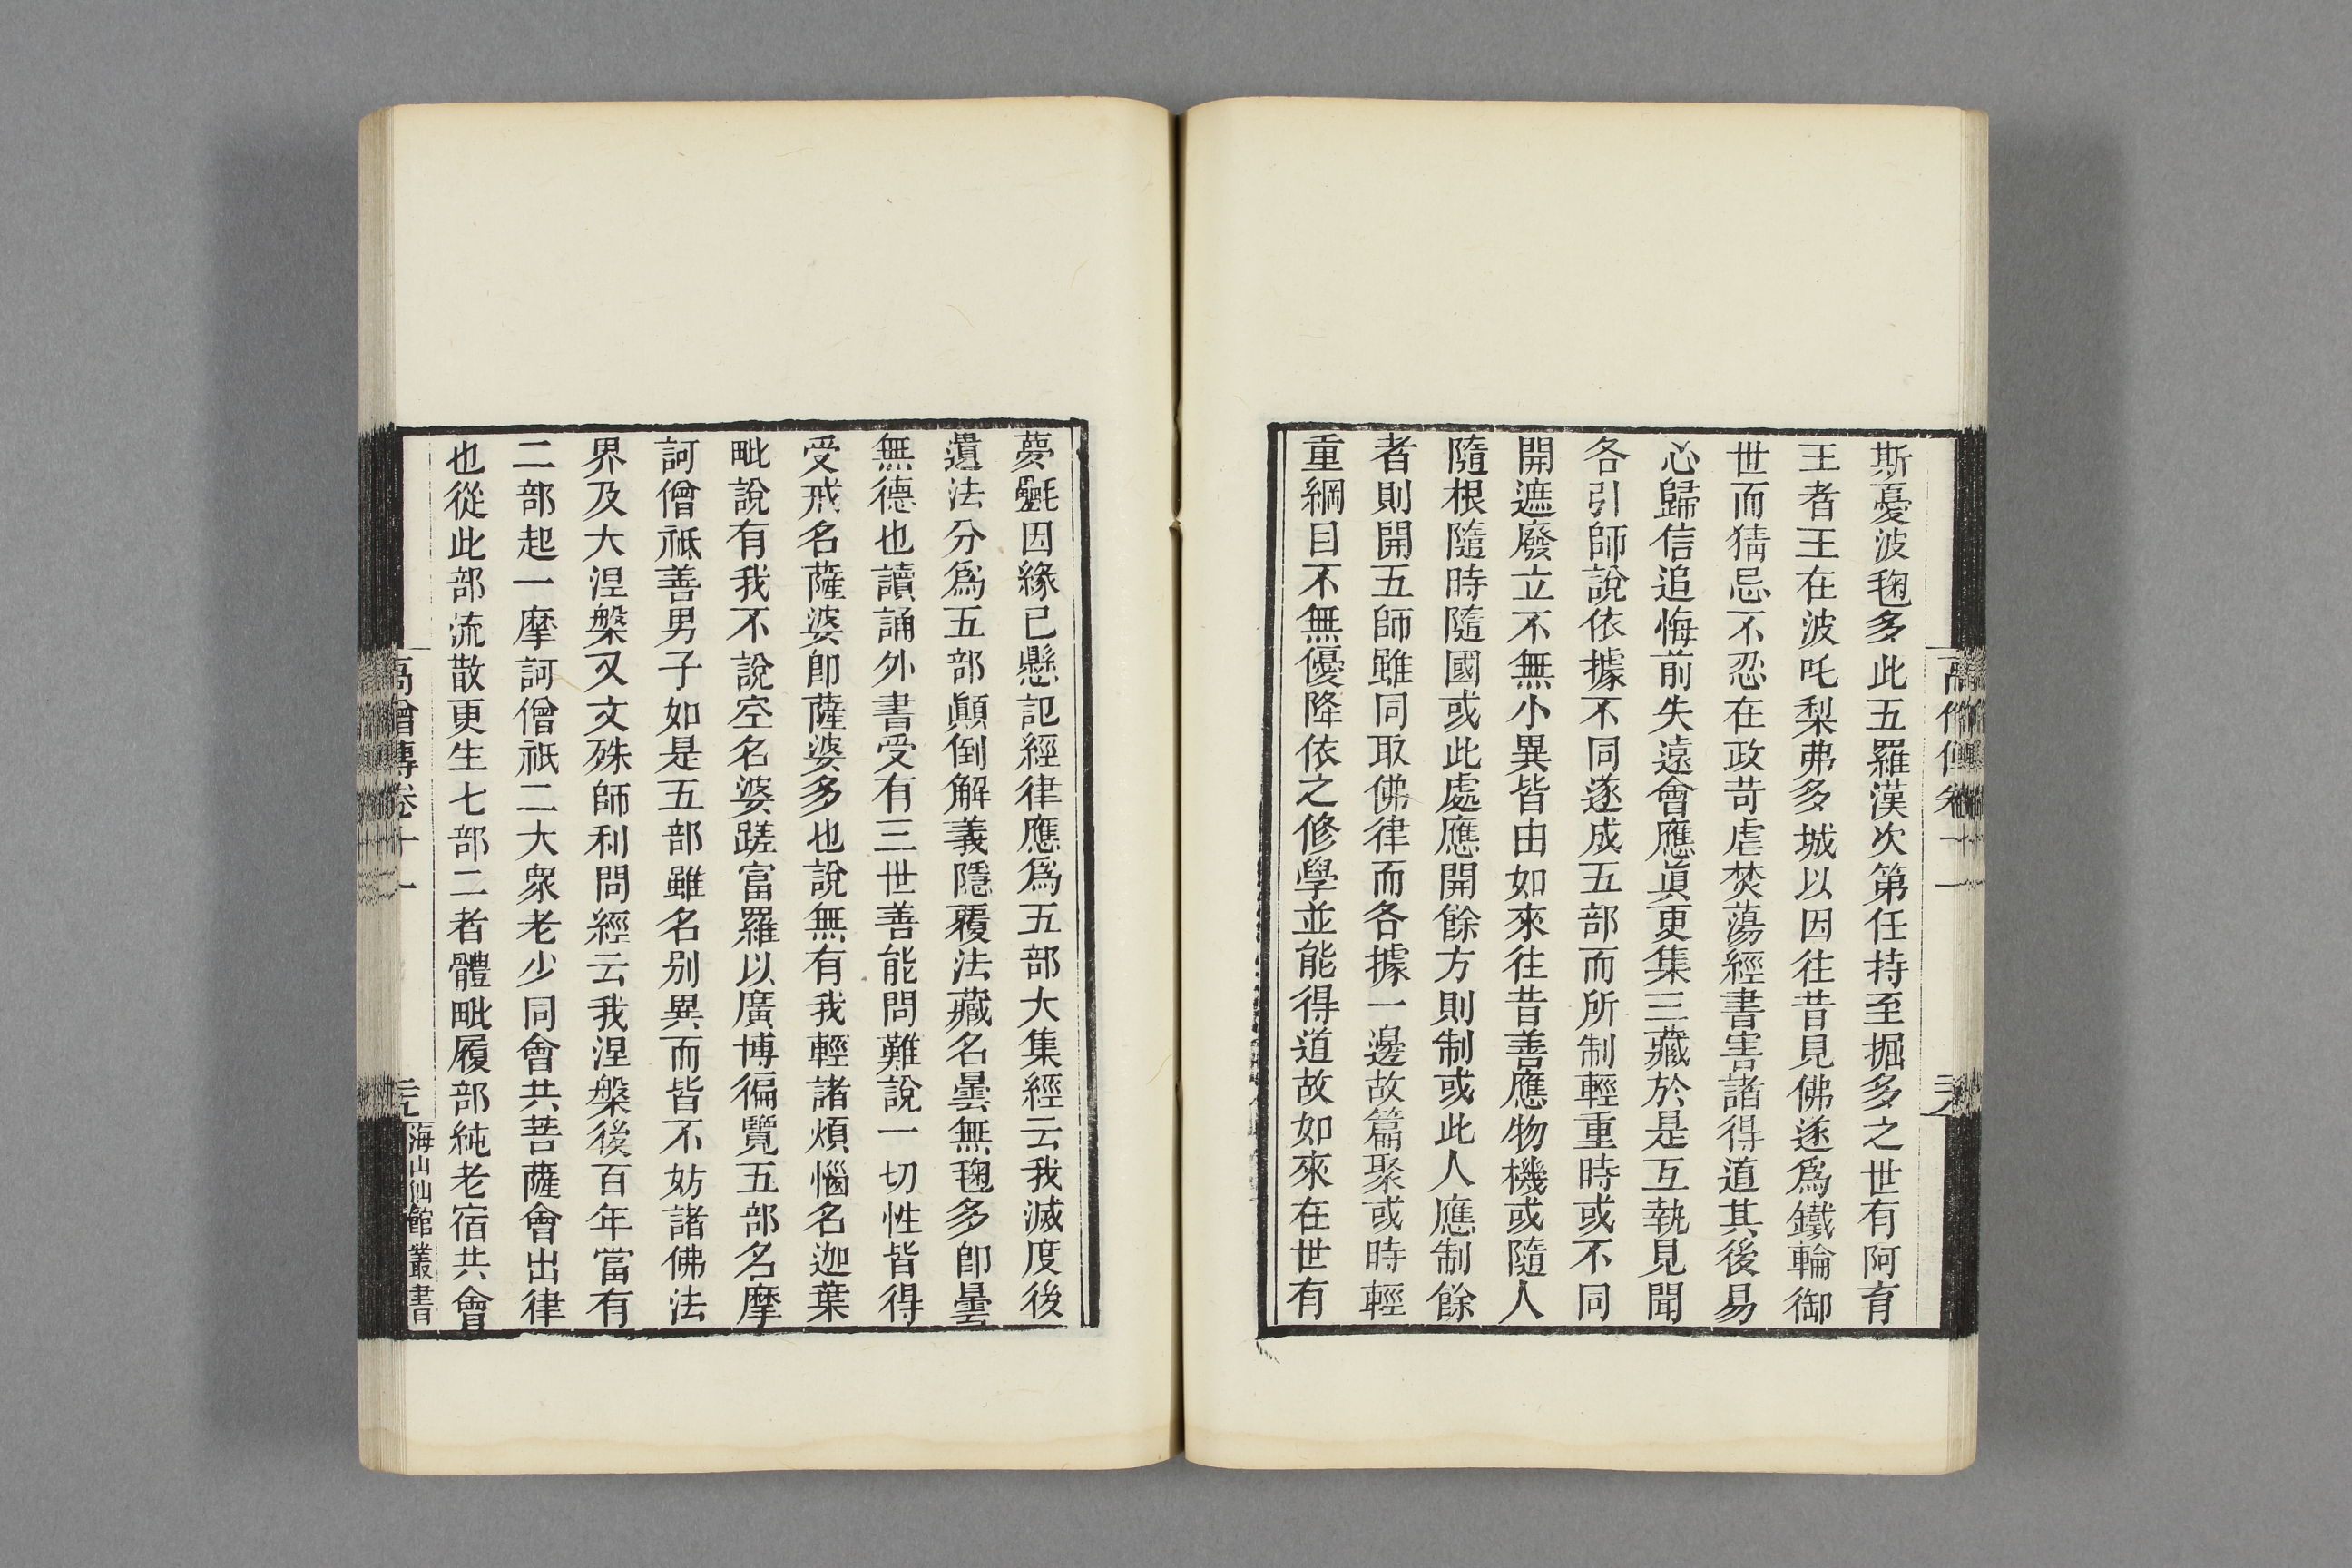 斯憂波毱多此五羅漢次第任持至掘多之世有阿育
王者王在波吒梨弗多城以因往昔見佛遂爲鐵輪御
世而猜忌不忍在政苛虐焚蕩經書害諸得道其後易
心歸信追悔前失遠會應眞更集三藏於是互執見聞
各引師說依據不同遂成五部而所制輕重時或不同
開遮廢立不無小異皆由如來往昔善應物機或隨人
隨根隨時隨國或此處應開餘方則制或此人應制餘
者則開五師雖同取佛律而各據一邊故篇聚或時輕
重綱目不無優降依之修學並能得道故如來在世有
夢㲲因緣已懸記經律應爲五部大集經云我滅度後
遺法分爲五部顚倒解義隱覆法藏名曇無毱多卽曇
無德也讀誦外書受有三世善能問難說一切性皆得
受戒名薩婆卽薩婆多也說無有我輕諸煩惱名迦葉
毗說有我不說空名婆蹉富羅以廣博徧覽五部名摩
訶僧祇善男子如是五部雖名別異而皆不妨諸佛法
界及大涅槃又文殊師利問經云我涅槃後百年當有
二部起一摩訶僧祇二大衆老少同會共菩薩會出律
也從此部流散更生七部二者體毗履部純老宿共會
高僧傳卷十一
海山仙館叢書